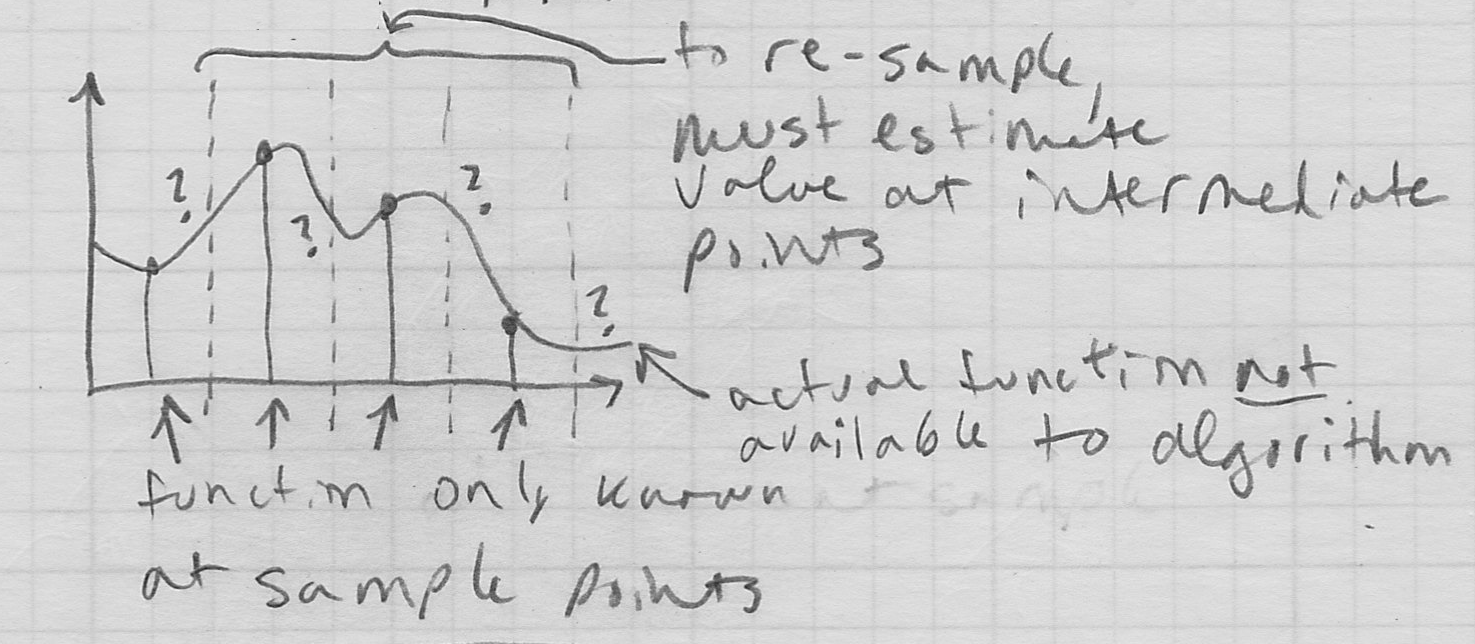 to re-sample,
must estimate
value at intermediate
points
?
?
?
?
actual function not
available to algorithm
function only known
at sample points